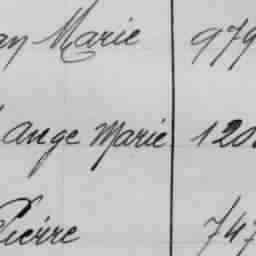 Marie 979
ange Marie 120
Pierre 747